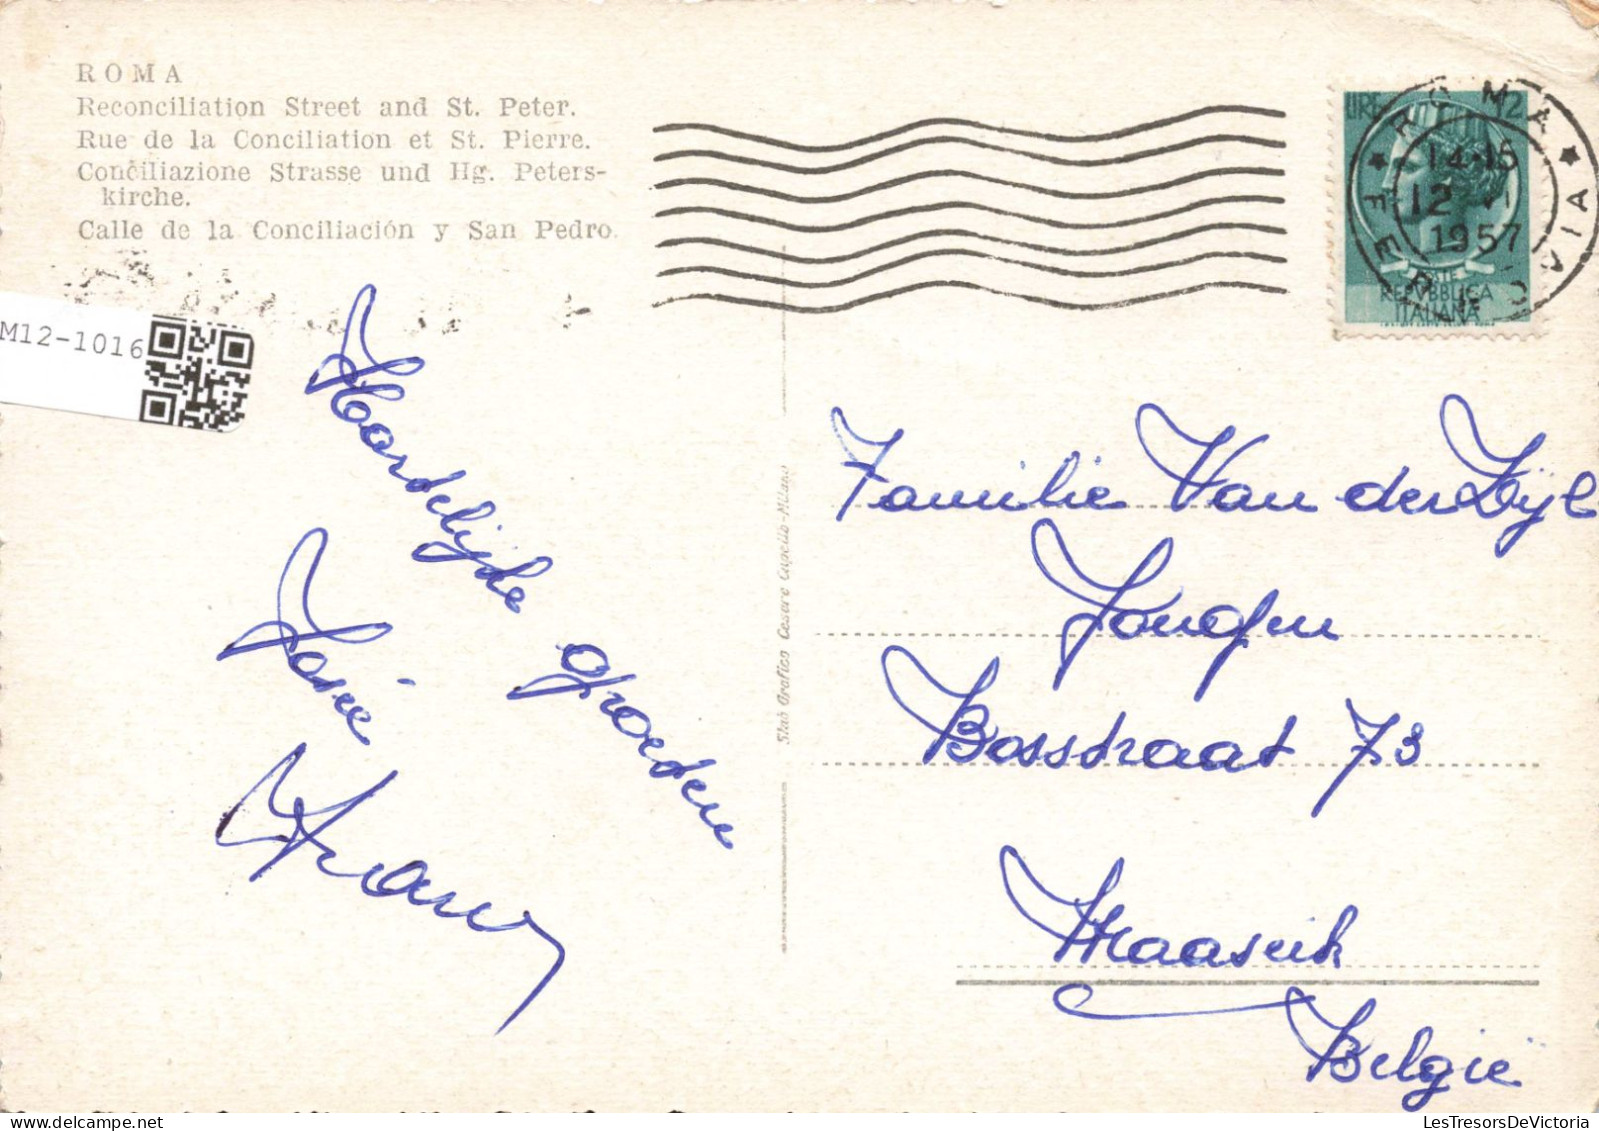 ROMA
Reconciliation Street and St. Peter.
Rue de la Conciliation et St. Pierre.
Conciliazione Strasse und Hg. Peters-
kirche.
Calle de la Conciliación y San Pedro.
M12-1016
LIRE 12
ROMA FERROVIA
14-15
12 VI
1957
REPVBBLICA
ITALIANA
Hartelijke groeten
José
Stab Grafico Cesare Capello-Milano
Familie Van der Zijl
Jongen
Bosstraat 73
Maaseik
België
LesTresorsDeVictoria.com